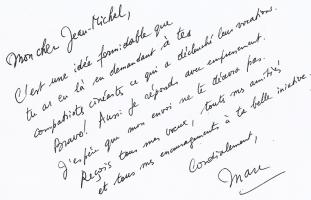 Mon cher Jean-Michel,
C'est une idée formidable que
tu as eu là en demandant à tes
compatriotes cinéastes ce qui a déclenché leur vocations.
Bravo! Aussi je réponds avec empressement.
J'espère que mon envoi ne te décevra pas.
Reçois tous mes vœux, toute mes amitiés
et tous mes encouragements à ta belle iniative.
Cordialement,
Marc